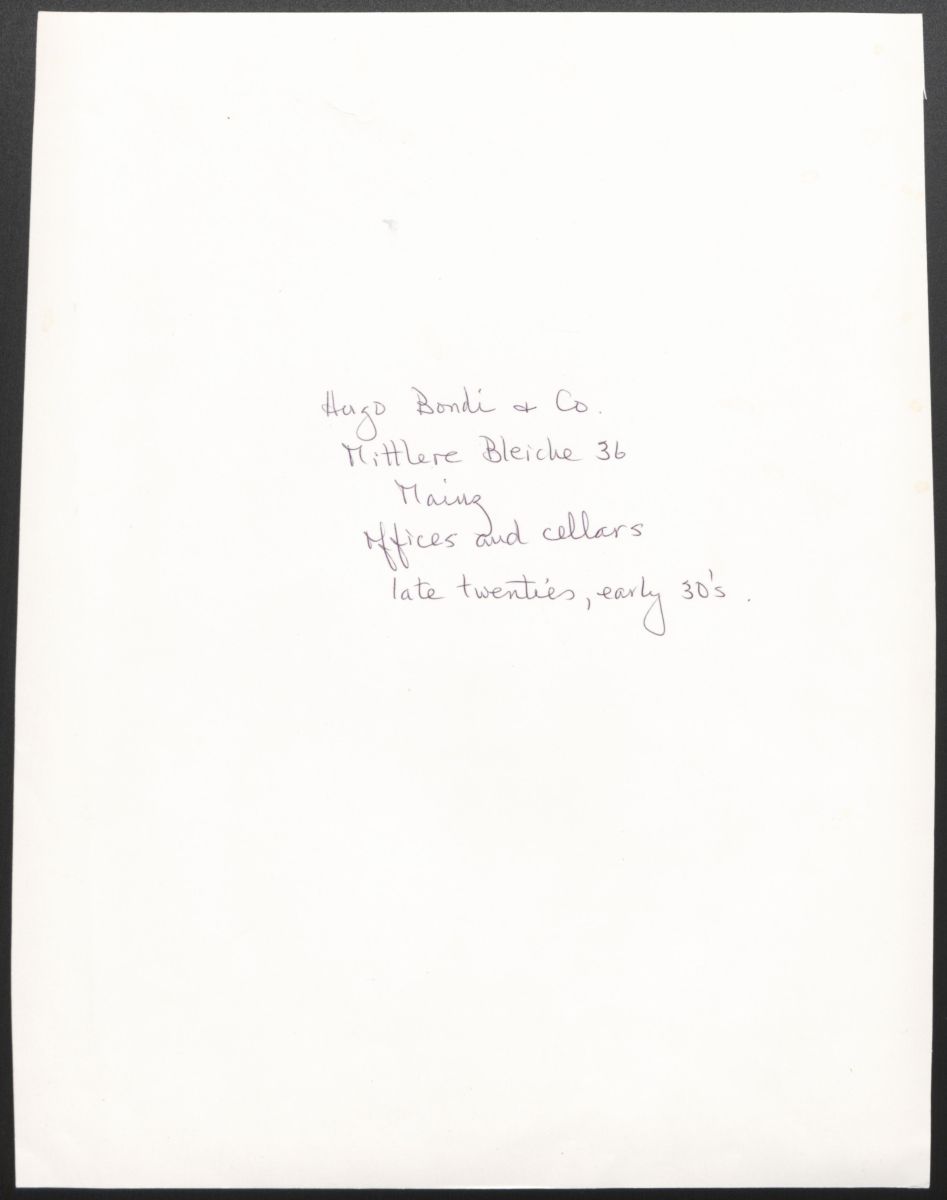 Hugo Bondi + Co.
Mittlere Bleiche 36
Mainz
offices and cellars
late twenties, early 30's.